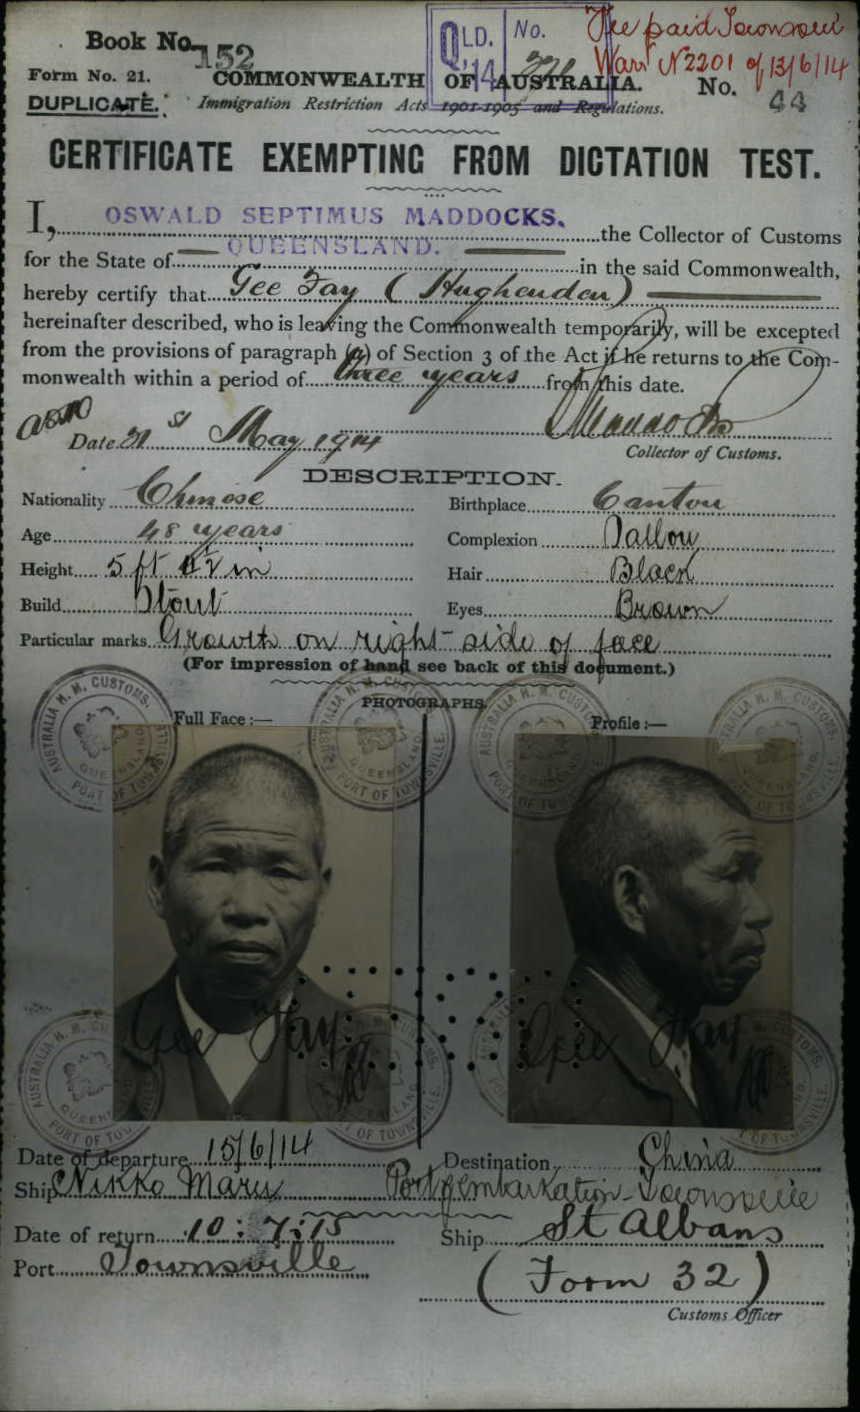 Book No. 152
QLD. No.
'14
Fee paid Townsville
Warrt No 2201 of 13/6/14
Form No. 21.
COMMONWEALTH OF AUSTRALIA.
No. 44
DUPLICATE.
Immigration Restriction Acts 1901-1905 and Regulations.
CERTIFICATE EXEMPTING FROM DICTATION TEST.
I, OSWALD SEPTIMUS MADDOCKS, the Collector of Customs
for the State of QUEENSLAND. in the said Commonwealth,
hereby certify that Gee Fay (Hughenden)
hereinafter described, who is leaving the Commonwealth temporarily, will be excepted
from the provisions of paragraph (a) of Section 3 of the Act if he returns to the Com-
monwealth within a period of three years from this date.
Date 21st May 1914
Collector of Customs.
DESCRIPTION.
Nationality Chinese Birthplace Canton
Age 48 years Complexion Sallow
Height 5 ft in Hair Black
Build Stout Eyes Brown
Particular marks Growth on right side of face
(For impression of hand see back of this document.)
PHOTOGRAPHS.
Full Face :— Profile :—
AUSTRALIA H. M. CUSTOMS. QUEENSLAND PORT OF TOWNSVILLE.
AUSTRALIA H. M. CUSTOMS. QUEENSLAND PORT OF TOWNSVILLE.
AUSTRALIA H. M. CUSTOMS. QUEENSLAND PORT OF TOWNSVILLE.
AUSTRALIA H. M. CUSTOMS. QUEENSLAND PORT OF TOWNSVILLE.
Gee Fay Gee Fay
Date of departure 15/6/14 Destination China
Ship Nikko Maru Port of Embarkation - Townsville
Date of return 10:7:15 Ship St Albans
Port Townsville
(Form 32)
Customs Officer